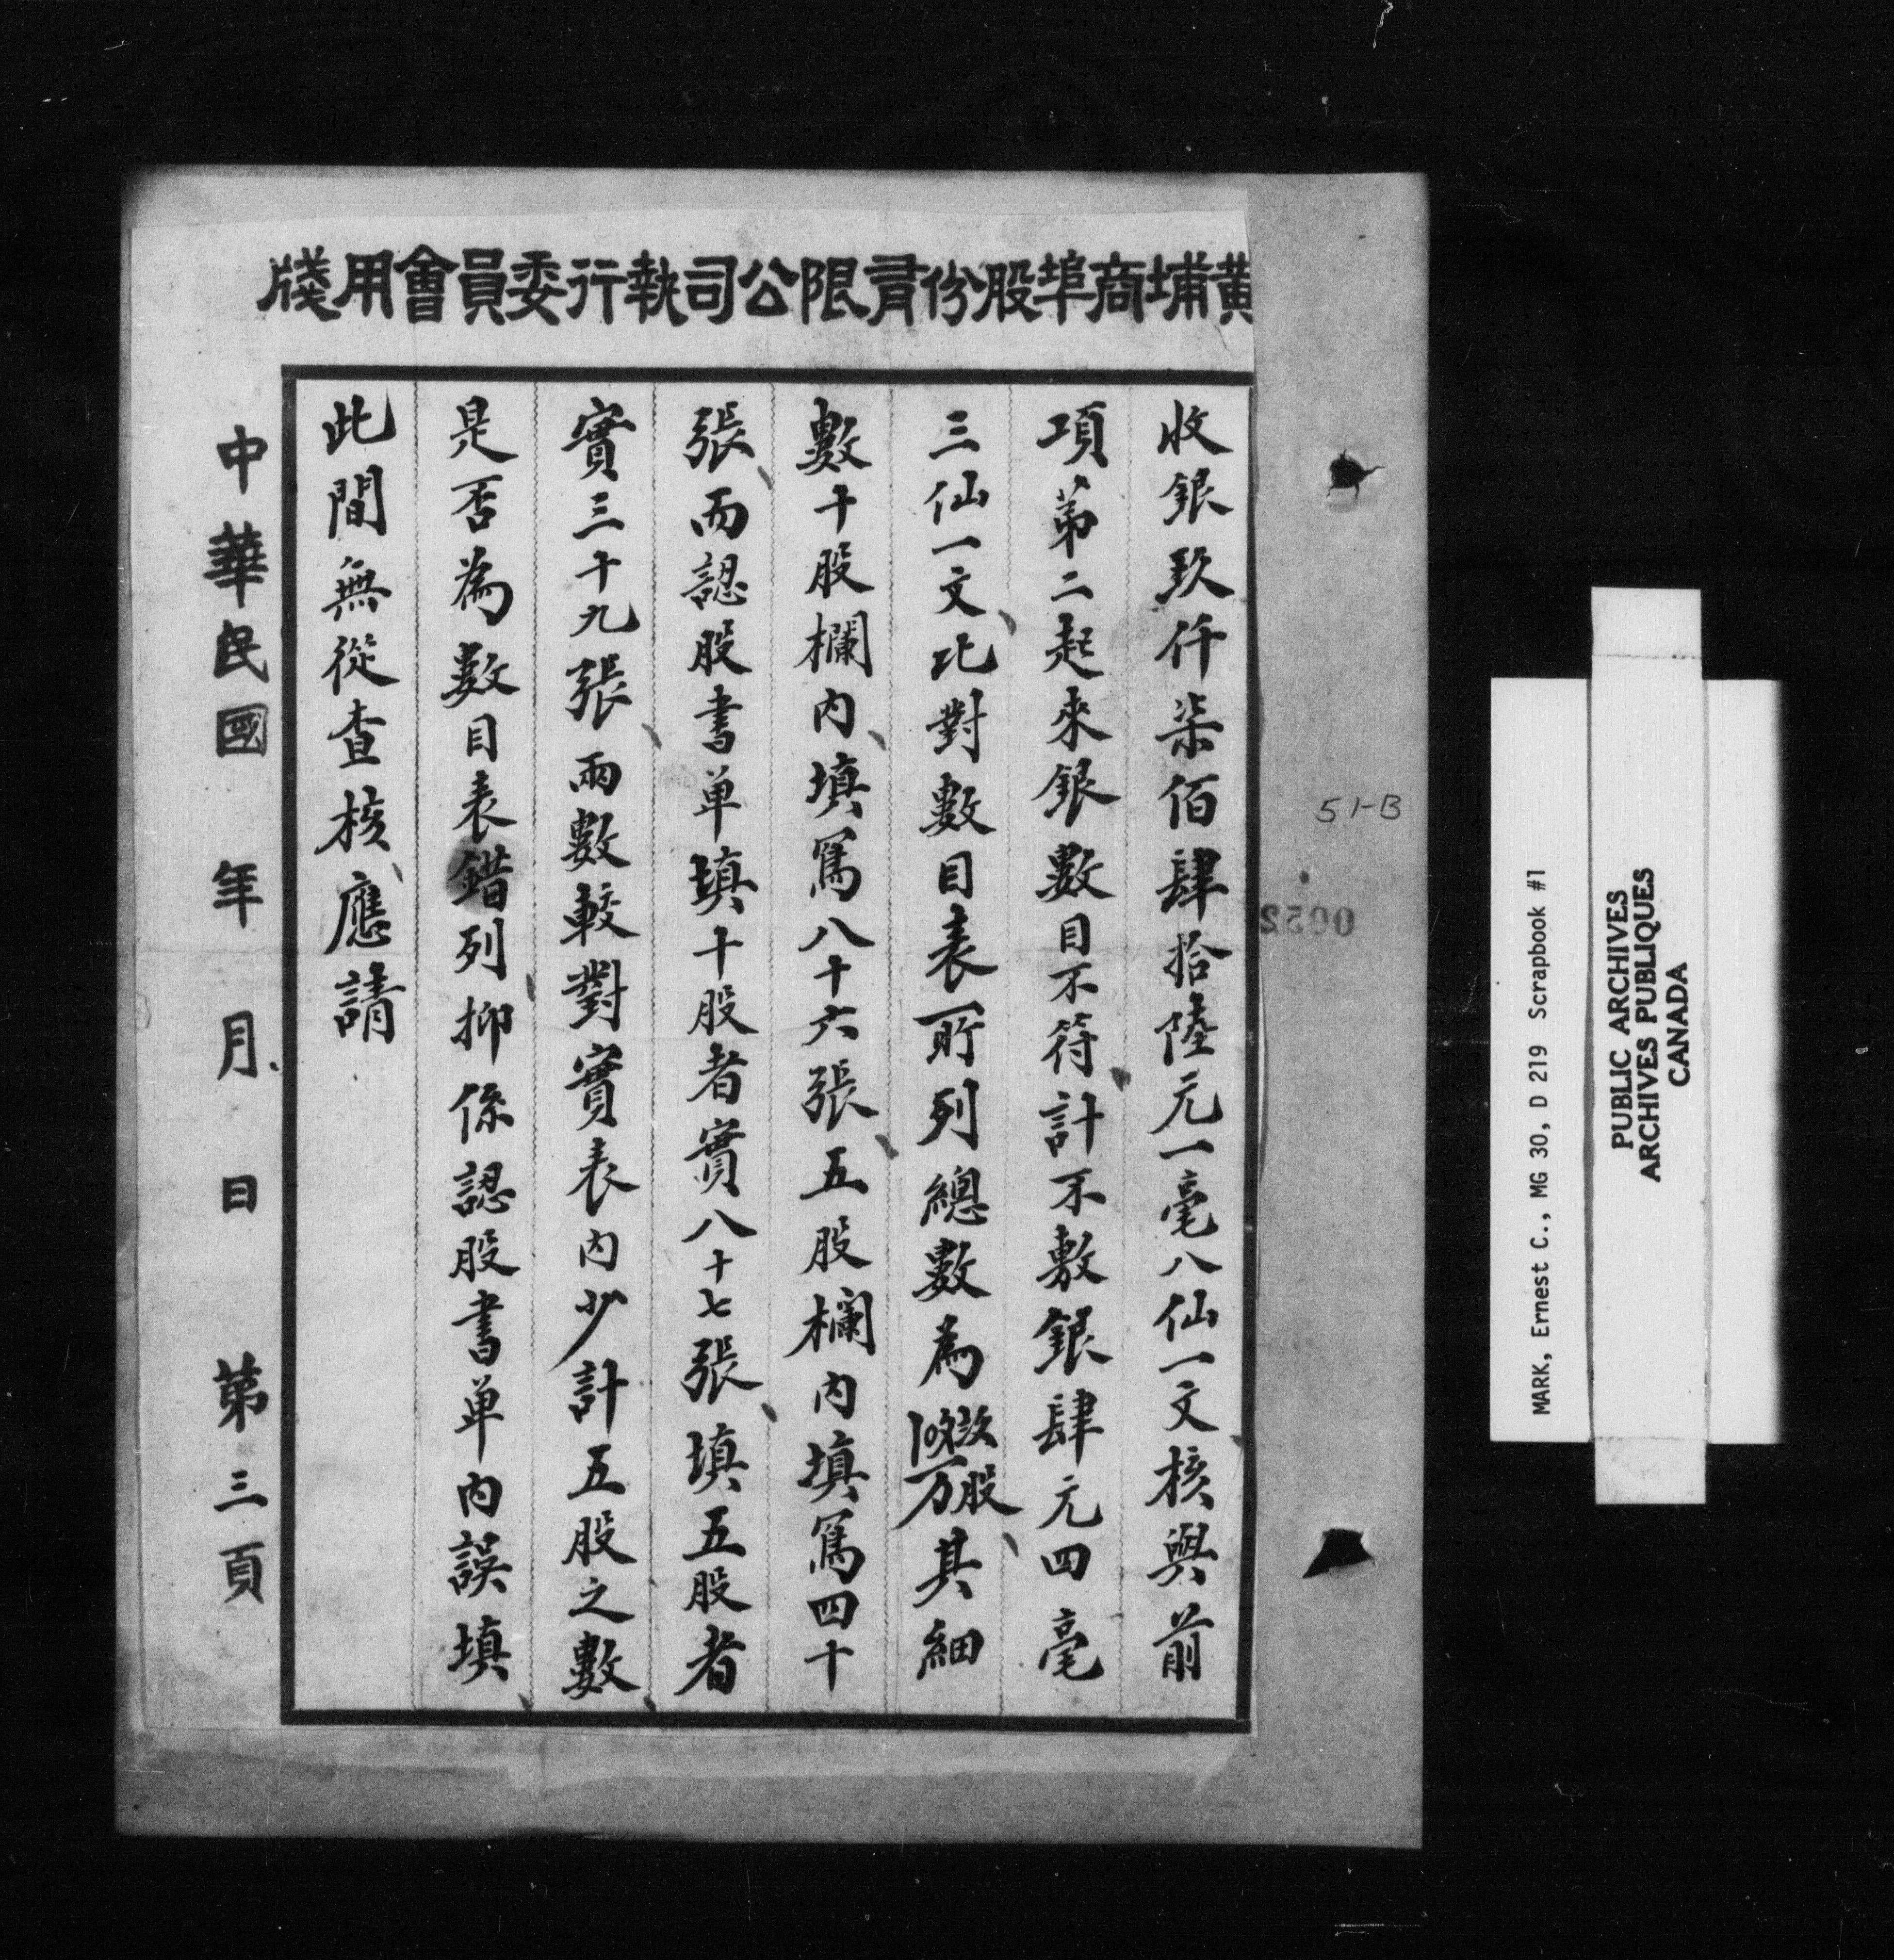 黃埔商埠股份有限公司執行委員會用牋
收銀玖仟柒佰肆拾陸元一毫八仙一文核與前
項第二起來銀數目不符計不敷銀肆元四毫
三仙一文比對數目表所列總數為 股其細
數十股欄內填寫八十六張五股欄內填寫四十
張而認股書单填十股者實八十七張填五股者
實三十九張兩數較對實表內少計五股之數
是否為數目表錯列抑係認股書单內誤填
此間無從查核應請
中華民國 年 月 日 第三頁
51-B
0052
MARK, Ernest C., MG 30, D 219 Scrapbook #1
PUBLIC ARCHIVES
ARCHIVES PUBLIQUES
CANADA